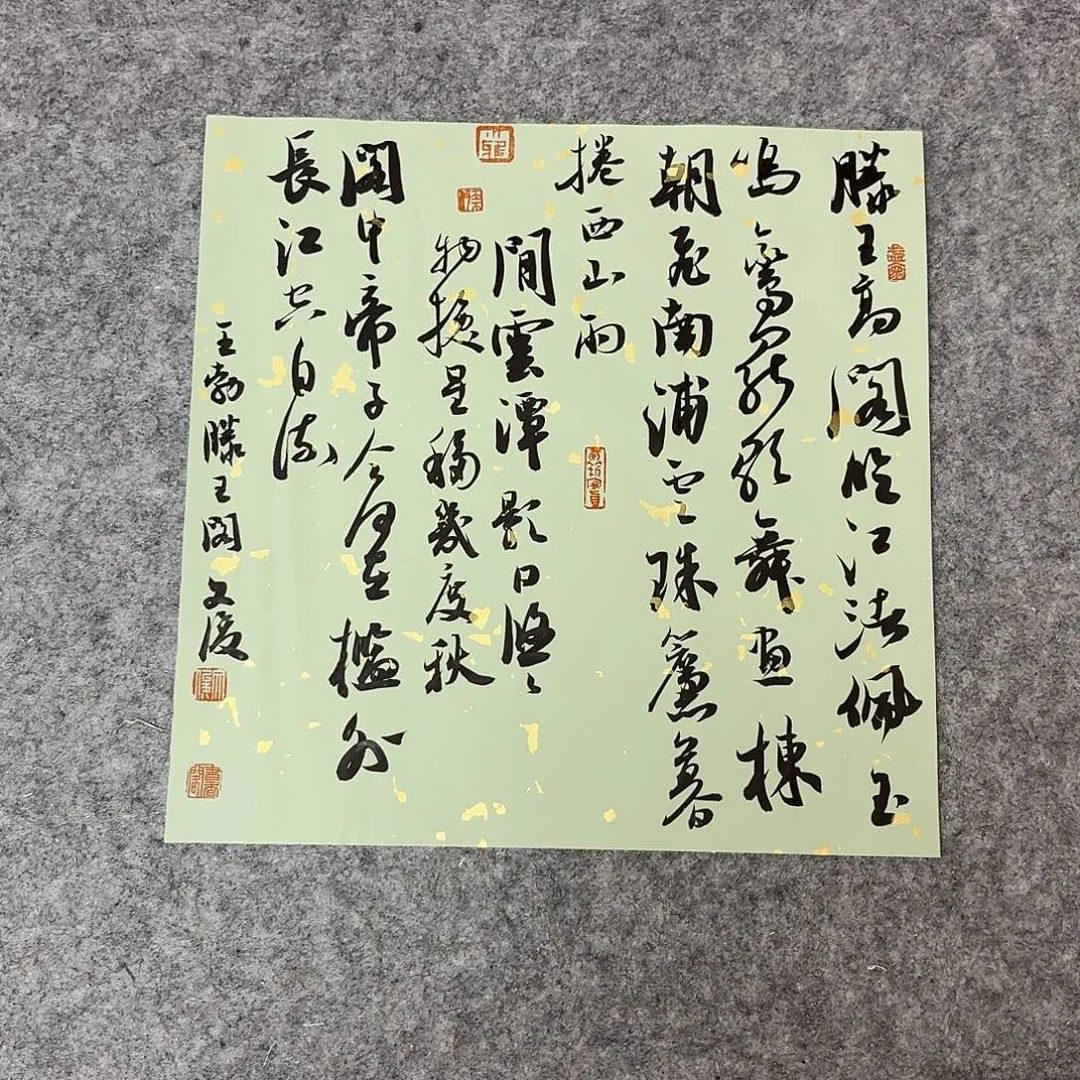 滕王高閣臨江渚佩玉
鳴鸞罷歌舞畫棟
朝飛南浦雲珠簾暮
捲西山雨
閒雲潭影日悠々
物換星移幾度秋
閣中帝子今何在檻外
長江空自流
王勃滕王閣 文